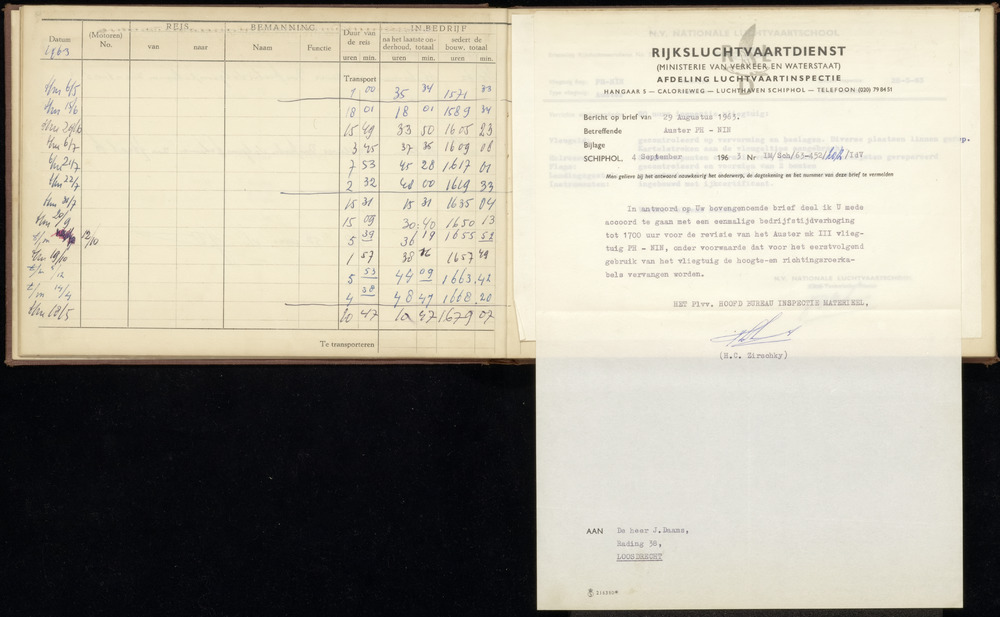 REIS
BEMANNING
IN BEDRIJF
Datum
(Motoren) No.
Duur van de reis
na het laatste onderhoud, totaal
sedert de bouw, totaal
1963
van
naar
Naam
Functie
uren min.
uren min.
uren min.
Transport
t/m 6/5 1 00 35 34 1571 33
t/m 15/6 18 01 18 01 1589 34
15 49 33 50 1605 23
t/m 6/7 3 45 37 35 1609 08
t/m 21/7 7 53 45 28 1617 01
t/m 22/7 2 32 48 00 1619 33
t/m 31/7 15 31 15 31 1635 04
t/m 20/9 15 09 30:40 1650 13
t/m 12/10 5 39 36 19 1655 52
t/m 19/10 1 57 38 16 1657 49
t/m 1/12 5 53 44 09 1663,42
t/m 14/4 4 38 48 47 1668 20
t/m 18/5 10 47 10 47 1679 07
Te transporteren
N.V. NATIONALE LUCHTVAARTSCHOOL
RIJKSLUCHTVAARTDIENST
(MINISTERIE VAN VERKEER EN WATERSTAAT)
AFDELING LUCHTVAARTINSPECTIE
HANGAAR 5 — CALORIEWEG — LUCHTHAVEN SCHIPHOL — TELEFOON (020) 798451
Bericht op brief van 29 Augustus 1963.
Betreffende Auster PH - NIN
Bijlage
SCHIPHOL, 4 September 1963 Nr IM/Sch/63-452/
Men gelieve bij het antwoord nauwkeurig het onderwerp, de dagtekening en het nummer van deze brief te vermelden
In antwoord op Uw bovengenoemde brief deel ik U mede
accoord te gaan met een eenmalige bedrijfstijdverhoging
tot 1700 uur voor de revisie van het Auster mk III vlieg-
tuig PH - NIN, onder voorwaarde dat voor het eerstvolgend
gebruik van het vliegtuig de hoogte-en richtingsroerka-
bels vervangen worden.
HET Plvv. HOOFD BUREAU INSPECTIE MATERIEEL,
(H.C. Zirschky)
AAN De heer J. Daams,
Rading 38,
LOOSDRECHT